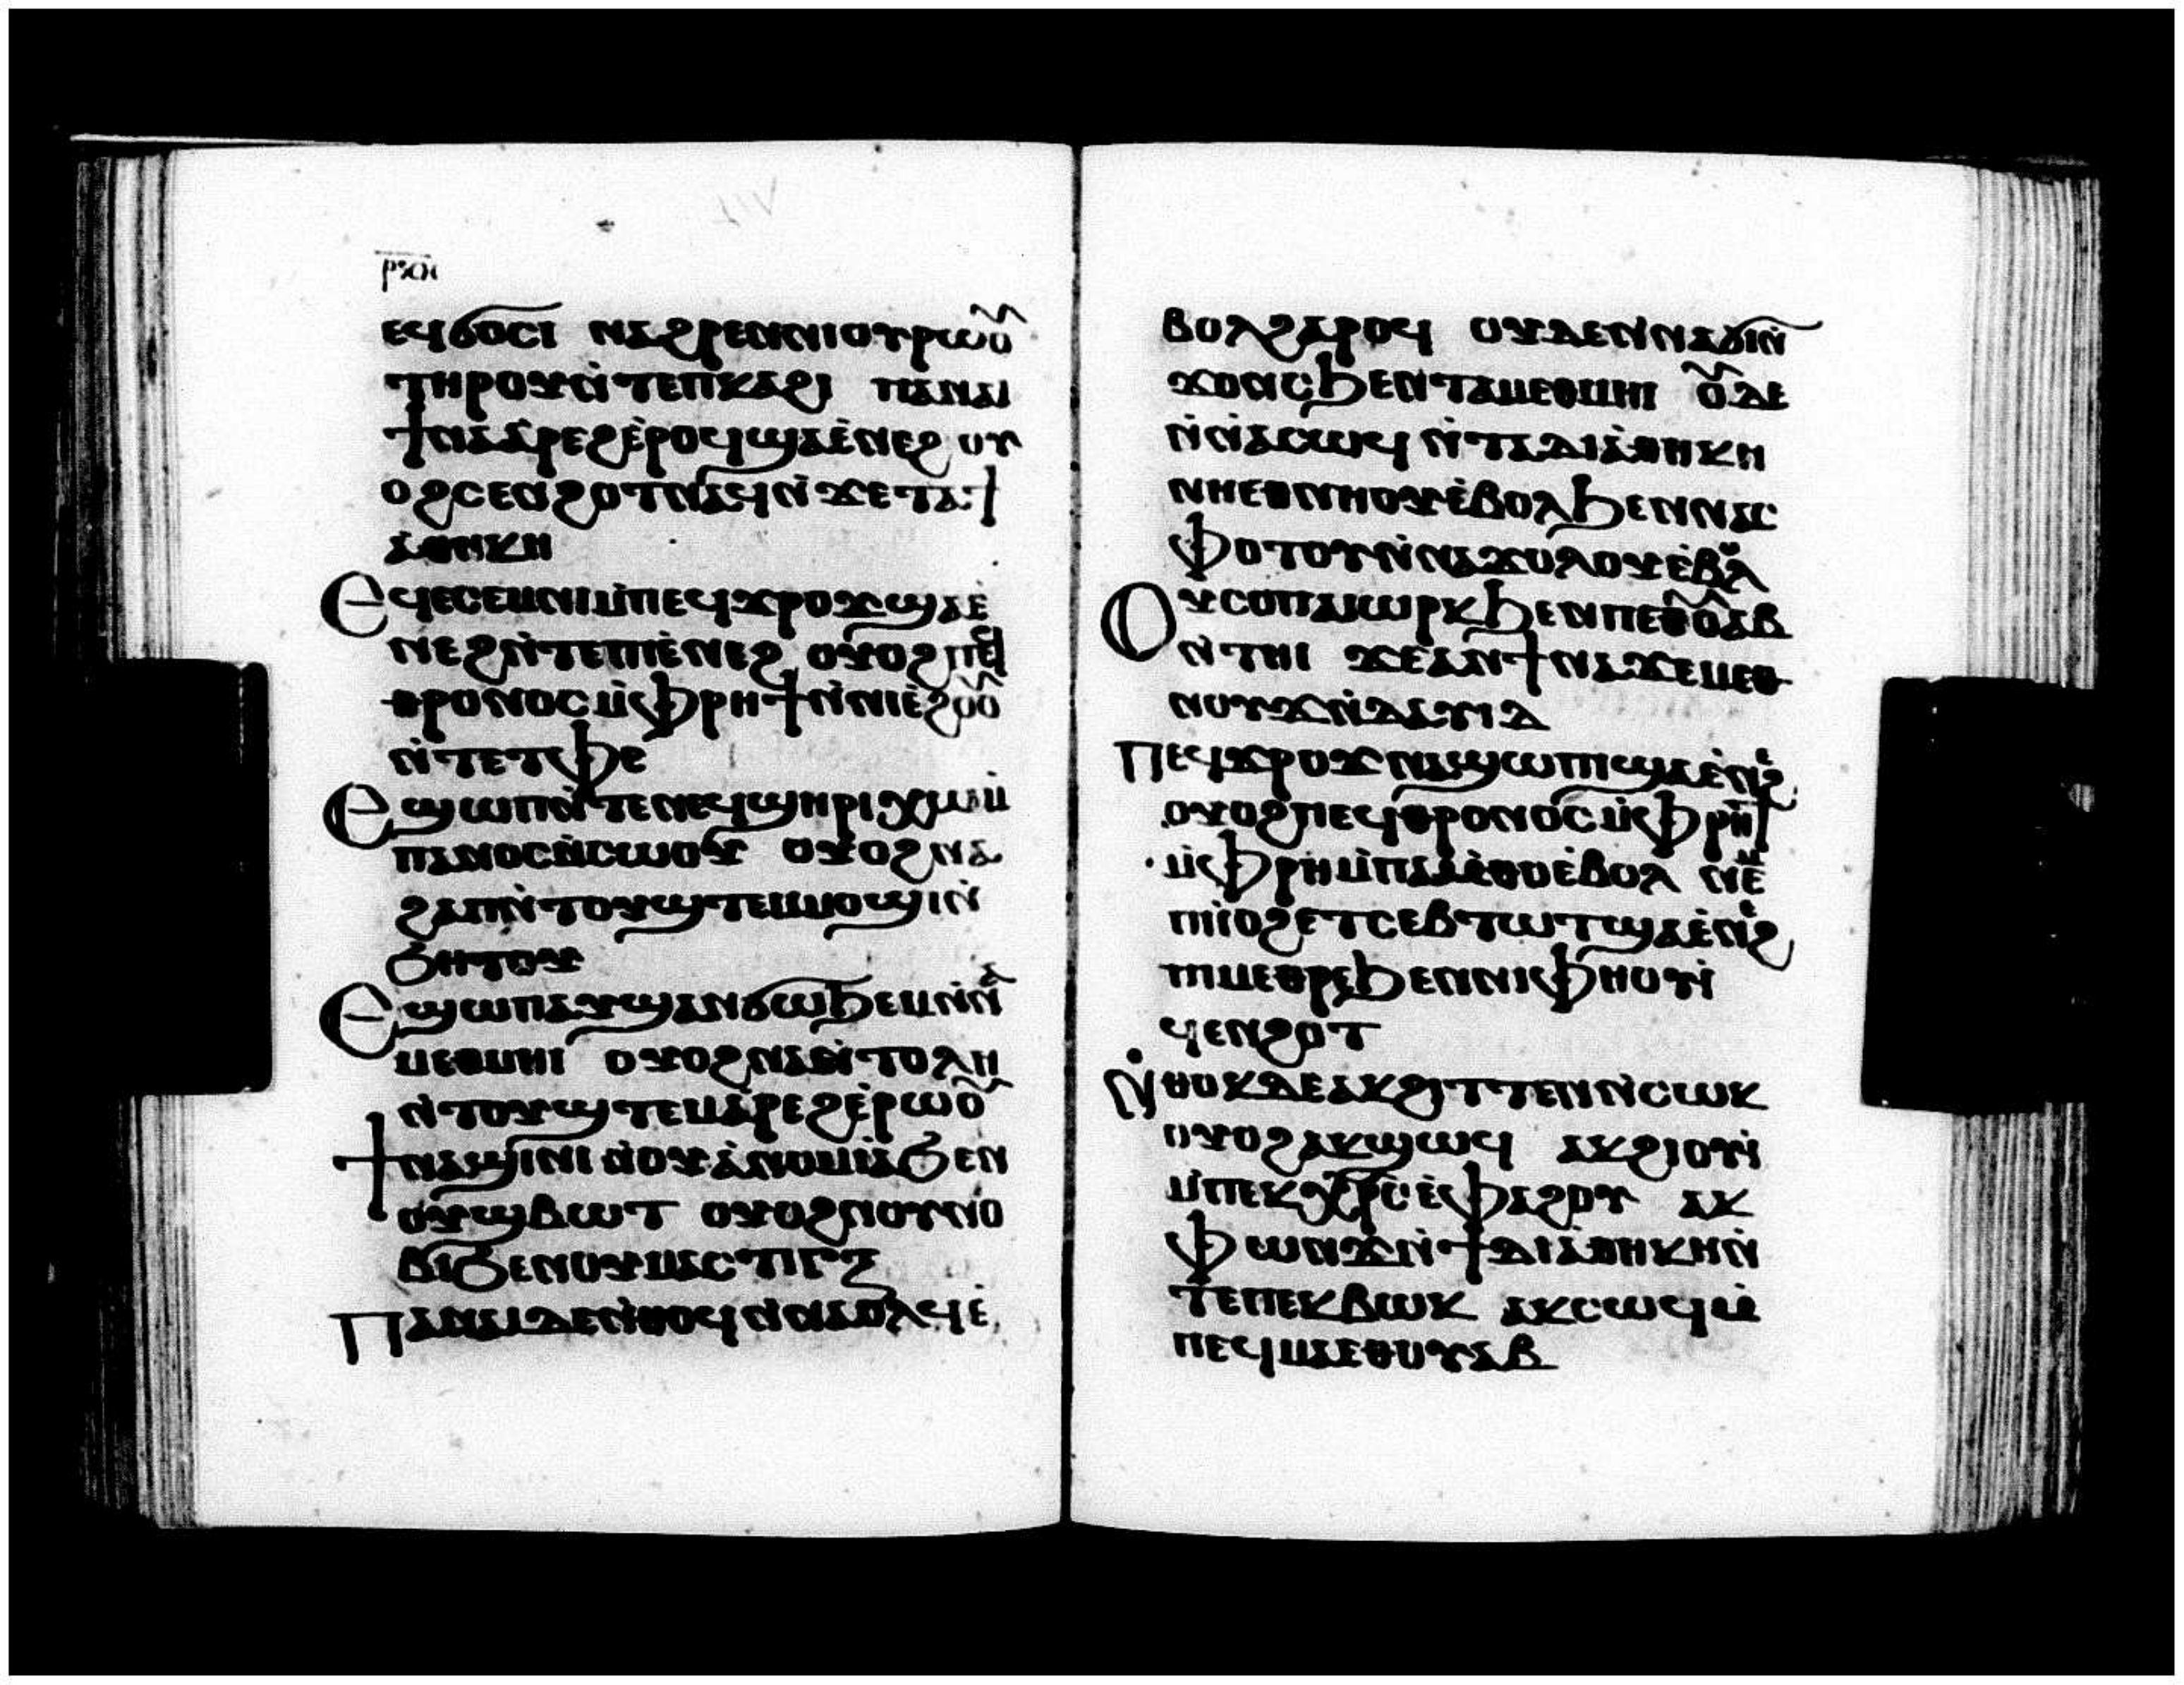 ⲉϥϭⲟⲥⲓ ⲛⲁϩⲣⲉⲛⲛⲓⲟⲩⲣⲱⲟ̃
ⲧⲏⲣⲟⲩⲛ̀ⲧⲉⲡⲕⲁϩⲓ ⲡⲁⲛⲁⲓ
ϯⲛⲁⲁ̀ⲣⲉϩⲉ̀ⲣⲟϥϣⲁⲉ̀ⲛⲉϩ ⲟⲩ
ⲟϩⲥⲉⲛϩⲟⲧⲛⲁϥⲛ̀ϫⲉⲧⲁϯ
ⲁⲑⲏⲕⲏ
Ⲉϥⲉⲥⲉⲙⲛⲓⲙ̀ⲡⲉϥϫⲣⲟϫϣⲁⲉ̀
ⲛⲉϩⲛ̀ⲧⲉⲡⲓⲉ̀ⲛⲉϩ ⲟⲩⲟϩⲡⲉϥ
ⲑⲣⲟⲛⲟⲥⲙ̀ⲫⲣⲏϯⲛ̀ⲛⲓⲉ̀ϩⲟⲟ̃
ⲛ̀ⲧⲉⲧⲫⲉ
Ⲉϣⲱⲡⲛ̀ⲧⲉⲛⲉϥϣⲏⲣⲓⲭⲱⲙ̀
ⲡⲁⲛⲟⲥⲛ̀ⲥⲱⲟⲩ ⲟⲩⲟϩⲛⲁ
ϩⲁⲡⲛ̀ⲧⲟⲩϣⲧⲉⲙⲙⲟϣⲓⲛ̀
ϧⲏⲧⲟⲩ
Ⲉϣⲱⲡⲁⲩϣⲁⲛϭⲱϧⲉⲙⲛ̀ⲛⲁ
ⲙⲉⲑⲙⲏⲓ ⲟⲩⲟϩⲛⲁⲉⲛⲧⲟⲗⲏ
ⲛ̀ⲧⲟⲩϣⲧⲉⲙⲁ̀ⲣⲉϩⲉ̀ⲣⲱⲟ̃
ϯⲛⲁϣⲓⲛⲓⲛ̀ⲟⲩⲁ̀ⲛⲟⲙⲓⲁ̀ϧⲉⲛ
ⲟⲩϣⲃⲱⲧ ⲟⲩⲟϩⲛⲟⲩⲛⲟ
ⲃⲓϧⲉⲛⲟⲩⲙⲁⲥⲧⲓⲅⲝ
Ⲡⲁⲛⲁⲓⲇⲉⲛ̀ⲑⲟϥⲛ̀ⲛⲁⲟⲗϥⲉ̀
ⲃⲟⲗϩⲁⲣⲟϥ ⲟⲩⲇⲉⲛ̀ⲛⲁϭⲓⲛ̀
ϫⲟⲛⲥϧⲉⲛⲧⲁⲙⲉⲑⲙⲏⲓ ⲟ̃ⲇⲉ
ⲛ̀ⲛⲁⲥⲱϥⲛ̀ⲧⲁⲇⲓⲁ̀ⲑⲏⲕⲏ
ⲛⲏⲉⲑⲛⲏⲟⲩⲉ̀ⲃⲟⲗϧⲉⲛⲛⲁⲥ
ⲫⲟⲧⲟⲩⲛ̀ⲛⲁϫⲟⲗⲟⲩⲉ̀ⲃⲟⲗ
Ⲟⲩⲥⲟⲡⲁⲓⲱⲣⲕϧⲉⲛⲡⲉⲑⲟ̃ⲁⲃ
ⲛ̀ⲧⲏⲓ ϫⲉⲁⲛϯⲛⲁϫⲉⲙⲉⲑ
ⲛⲟⲩϫⲛ̀ⲇⲁⲩⲓⲇ
Ⲡⲉϥϫⲣⲟϫⲛⲁϣⲱⲡⲓϣⲁⲉ̀ⲛⲉϩ
ⲟⲩⲟϩⲡⲉϥⲑⲣⲟⲛⲟⲥⲙ̀ⲫⲣⲏϯ
ⲙ̀ⲫⲣⲏⲙ̀ⲡⲁⲙ̀ⲑⲟⲉ̀ⲃⲟⲗ ⲛⲉⲙ
ⲡⲓⲓⲟϩⲉⲧⲥⲉⲃⲧⲱⲧϣⲁⲉ̀ⲛⲉϩ
ⲡⲓⲙⲉⲑⲣⲉϧⲉⲛⲛⲓⲫⲏⲟⲩⲓ̀
ϥⲉⲛϩⲟⲧ
Ⲛ̀ⲑⲟⲕⲇⲉⲁⲕϩⲓⲧⲧⲉⲛⲛ̀ⲥⲱⲕ
ⲟⲩⲟϩⲁⲕϣⲱϥ ⲁⲕϩⲓⲟⲩⲓ̀
ⲙ̀ⲡⲉⲕⲭⲣ̅ⲥⲉ̀ⲫⲁϩⲟⲩ ⲁⲕ
ⲫⲱⲛϫⲛ̀ϯⲇⲓⲁⲑⲏⲕⲏⲛ̀
ⲧⲉⲡⲉⲕⲃⲱⲕ ⲁⲕⲥⲱϥⲙ̀
ⲡⲉϥⲙⲁⲉⲑⲟⲩⲁⲃ